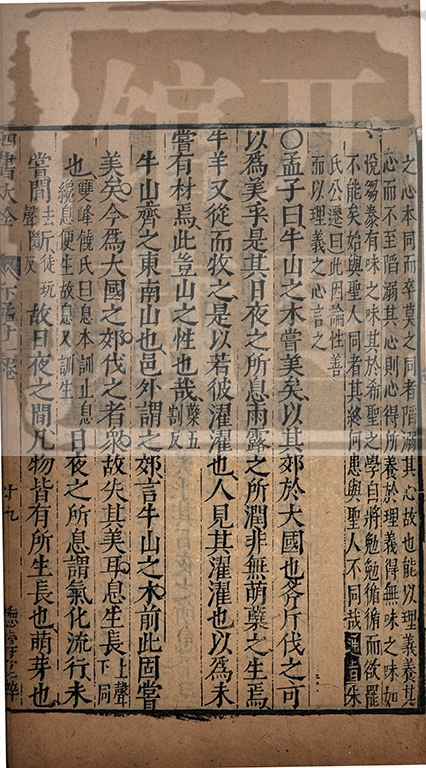 之心本同而卒莫之同者陷溺其心故也能以理義養其
心而不至陷溺其心則心得所養於理義得無味之味如
悅芻豢有味之味其於希聖之學自將勉勉循循而欲罷
不能矣始與聖人同者其終何患與聖人不同哉通旨朱
氏公遷曰此因論性善
而以理義之心言之
〇孟子曰牛山之木嘗美矣以其郊於大國也斧斤伐之可
以爲美乎是其日夜之所息雨露之所潤非無萌蘖之生焉
牛羊又從而牧之是以若彼濯濯也人見其濯濯也以爲未
嘗有材焉此豈山之性也哉蘖五割反
牛山齊之東南山也邑外謂之郊言牛山之木前此固嘗
美矣今爲大國之郊伐之者衆故失其美耳息生長上聲下同
也雙峰饒氏曰息本訓止息
纔息便生故息又訓生日夜之所息謂氣化流行未
嘗間去聲斷徒玩反故日夜之間凡物皆有所生長也萌芽也
四書大全
十九